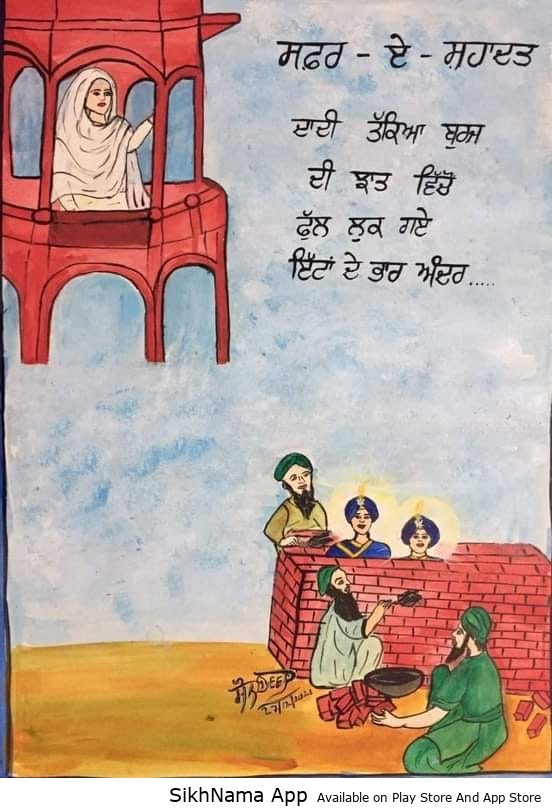 ਸਫ਼ਰ - ਏ - ਸ਼ਹਾਦਤ
ਦਾਦੀ ਤੱਕਿਆ ਬੁਰਜ
ਦੀ ਝਾਤ ਵਿੱਚੋਂ
ਫੁੱਲ ਲੁਕ ਗਏ
ਇੱਟਾਂ ਦੇ ਭਾਰ ਅੰਦਰ.....
SikhNama App Available on Play Store And App Store